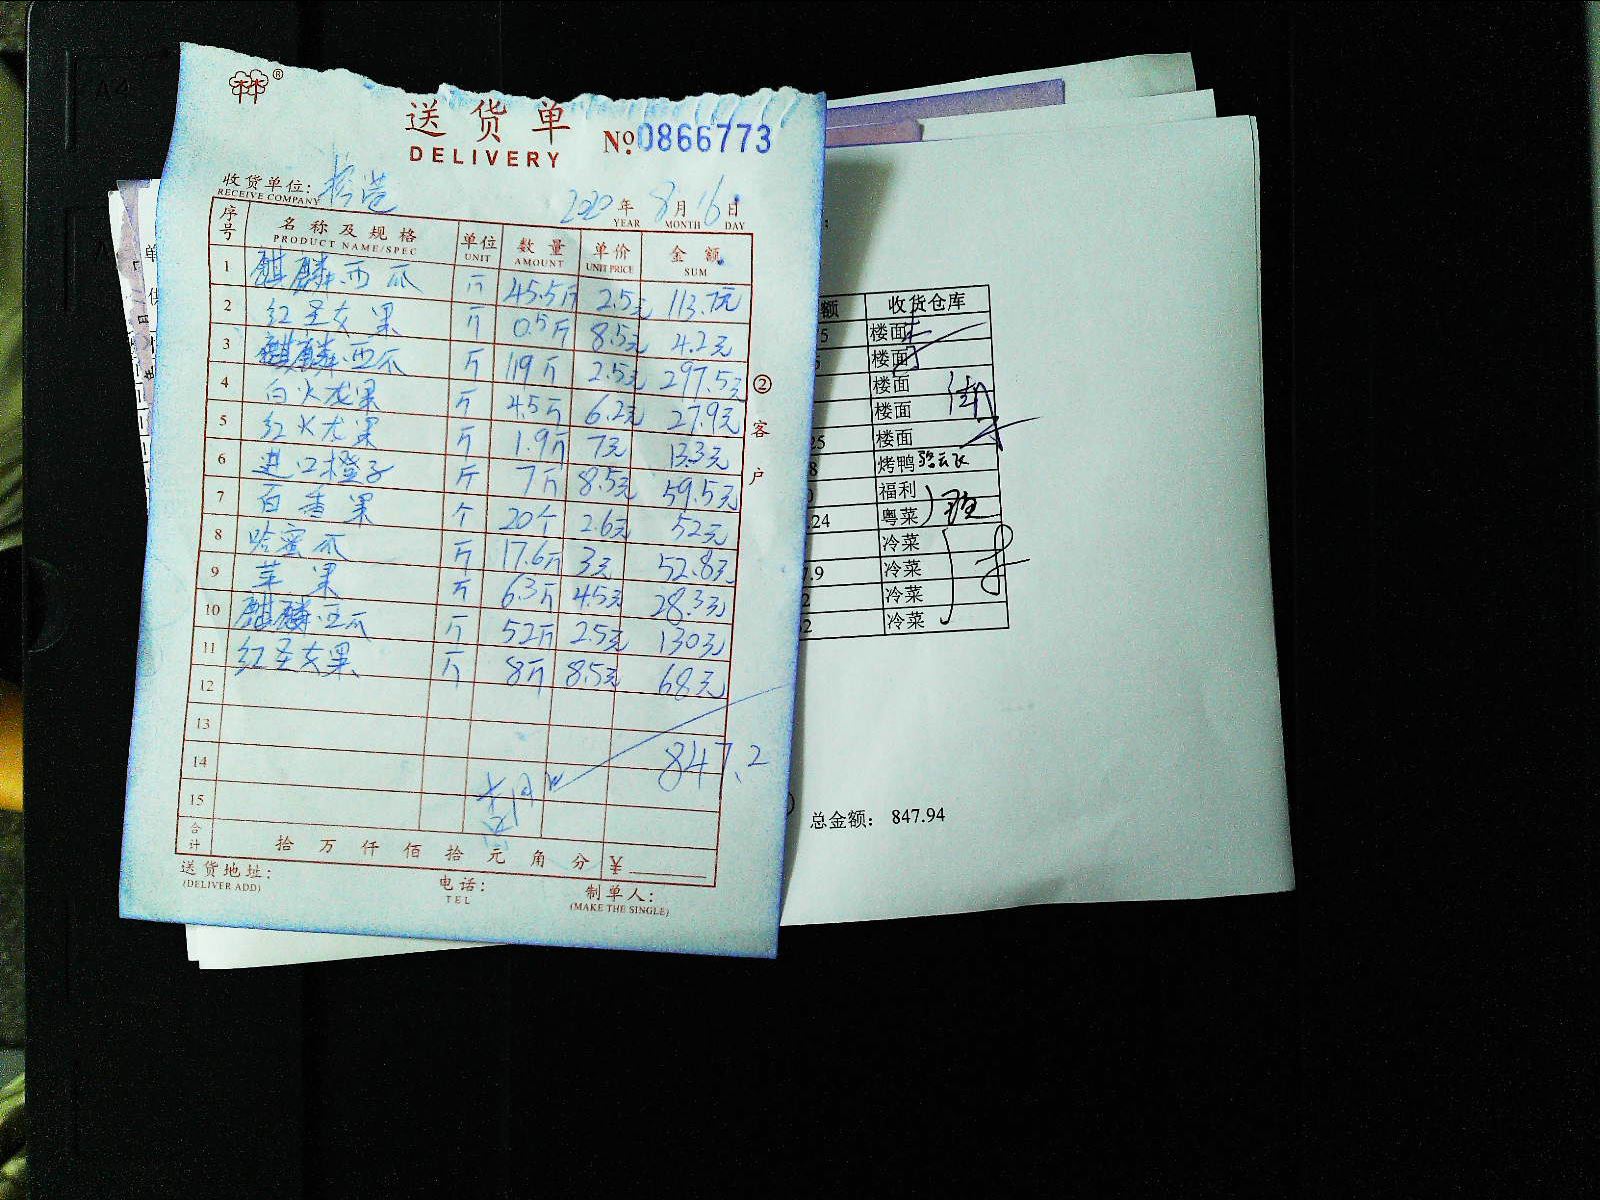 林 ®
送货单
DELIVERY
No 0866773
收货单位:
RECEIVE COMPANY
2020 年 8 月 16 日
YEAR MONTH DAY
序号 名称及规格 单位 数量 单价 金额
PRODUCT NAME/SPEC UNIT AMOUNT UNIT PRICE SUM
1 麒麟西瓜 斤 45.5斤 2.5元 113.7元
2 红圣女果 斤 0.5斤 8.5元 4.2元
3 麒麟西瓜 斤 119斤 2.5元 297.5元
4 白火龙果 斤 4.5斤 6.2元 27.9元
5 红火龙果 斤 1.9斤 7元 13.3元
6 进口橙子 斤 7斤 8.5元 59.5元
7 百香果 个 20个 2.6元 52元
8 哈蜜瓜 斤 17.6斤 3元 52.8元
9 苹果 斤 6.3斤 4.5元 28.3元
10 麒麟西瓜 斤 52斤 2.5元 130元
11 红圣女果 斤 8斤 8.5元 68元
12
13
14 847.2
15
合计 拾 万 仟 佰 拾 元 角 分 ¥
送货地址:
(DELIVER ADD)
电话:
TEL
制单人:
(MAKE THE SINGLE)
② 客户
额 收货仓库
5 楼面
5 楼面
楼面
楼面
25 楼面
8 烤鸭
0 福利
.24 粤菜
冷菜
7.9 冷菜
2 冷菜
52 冷菜
总金额: 847.94
A4